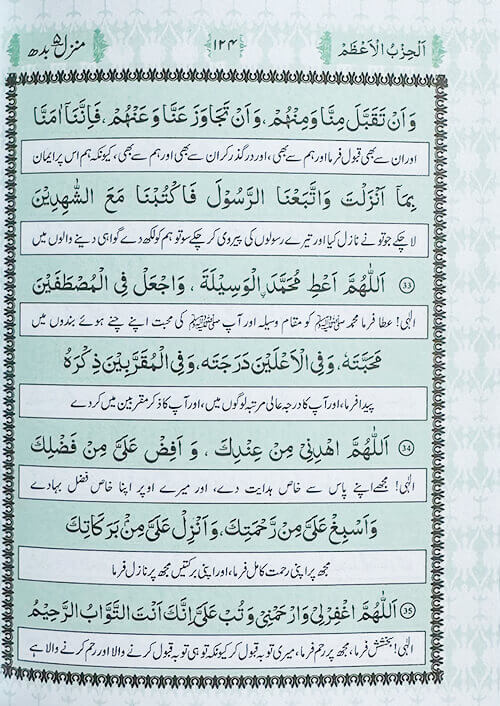 اَلْحِزْبُ الْاَعْظَمْ ١٢٤ منزل ۵ بدھ
وَاَنْ تَقَبَّلَ مِنَّا وَمِنْهُمْ، وَاَنْ تَجَاوَزَ عَنَّا وَعَنْهُمْ، فَاِنَّنَا اٰمَنَّا
اور ان سے بھی قبول فرما اور ہم سے بھی، اور درگذر کر ان سے بھی اور ہم سے بھی، کیونکہ ہم اس پر ایمان
بِمَا اَنْزَلْتَ وَاتَّبَعْنَا الرَّسُوْلَ فَاكْتُبْنَا مَعَ الشّٰهِدِيْنَ
لا چکے جو تو نے نازل کیا اور تیرے رسولوں کی پیروی کر چکے سو تو ہم کو لکھ دے گواہی دینے والوں میں
33 اَللّٰهُمَّ اَعْطِ مُحَمَّدَ ࣙالْوَسِيْلَةَ، وَاجْعَلْ فِى الْمُصْطَفَيْنَ
الٰہی! عطا فرما محمد ﷺ کو مقام وسیلہ اور آپ ﷺ کی محبت اپنے چنے ہوئے بندوں میں
مَحَبَّتَهٗ، وَفِى الْاَعْلَيْنَ دَرَجَتَهٗ، وَفِى الْمُقَرَّبِيْنَ ذِكْرَهٗ
پیدا فرما، اور آپ کا درجہ عالی مرتبہ لوگوں میں، اور آپ کا ذکر مقربین میں کر دے
34 اَللّٰهُمَّ اهْدِنِىْ مِنْ عِنْدِكَ، وَ اَفِضْ عَلَىَّ مِنْ فَضْلِكَ
الٰہی! مجھے اپنے پاس سے خاص ہدایت دے، اور میرے اوپر اپنا خاص فضل بہا دے
وَاَسْبِغْ عَلَىَّ مِنْ رَّحْمَتِكَ، وَاَنْزِلْ عَلَىَّ مِنْ بَرَكَاتِكَ
مجھ پر اپنی رحمت کامل فرما، اور اپنی برکتیں مجھ پر نازل فرما
35 اَللّٰهُمَّ اغْفِرْلِىْ وَارْحَمْنِىْ وَتُبْ عَلَىَّ اِنَّكَ اَنْتَ التَّوَّابُ الرَّحِيْمُ
الٰہی! بخشش فرما، مجھ پر رحم فرما، میری توبہ قبول کر کیونکہ تو ہی توبہ قبول کرنے والا اور رحم کرنے والا ہے